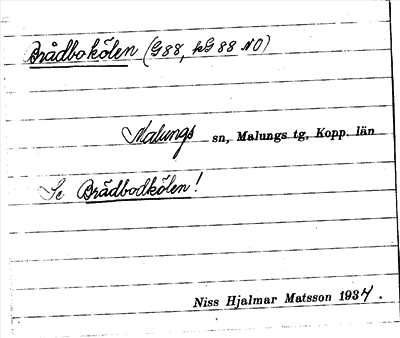 Brådbokölen (G88, kG 88 NO)
Malungs sn, Malungs tg, Kopp. län
Se Brådbodkölen!
Niss Hjalmar Matsson 1934.